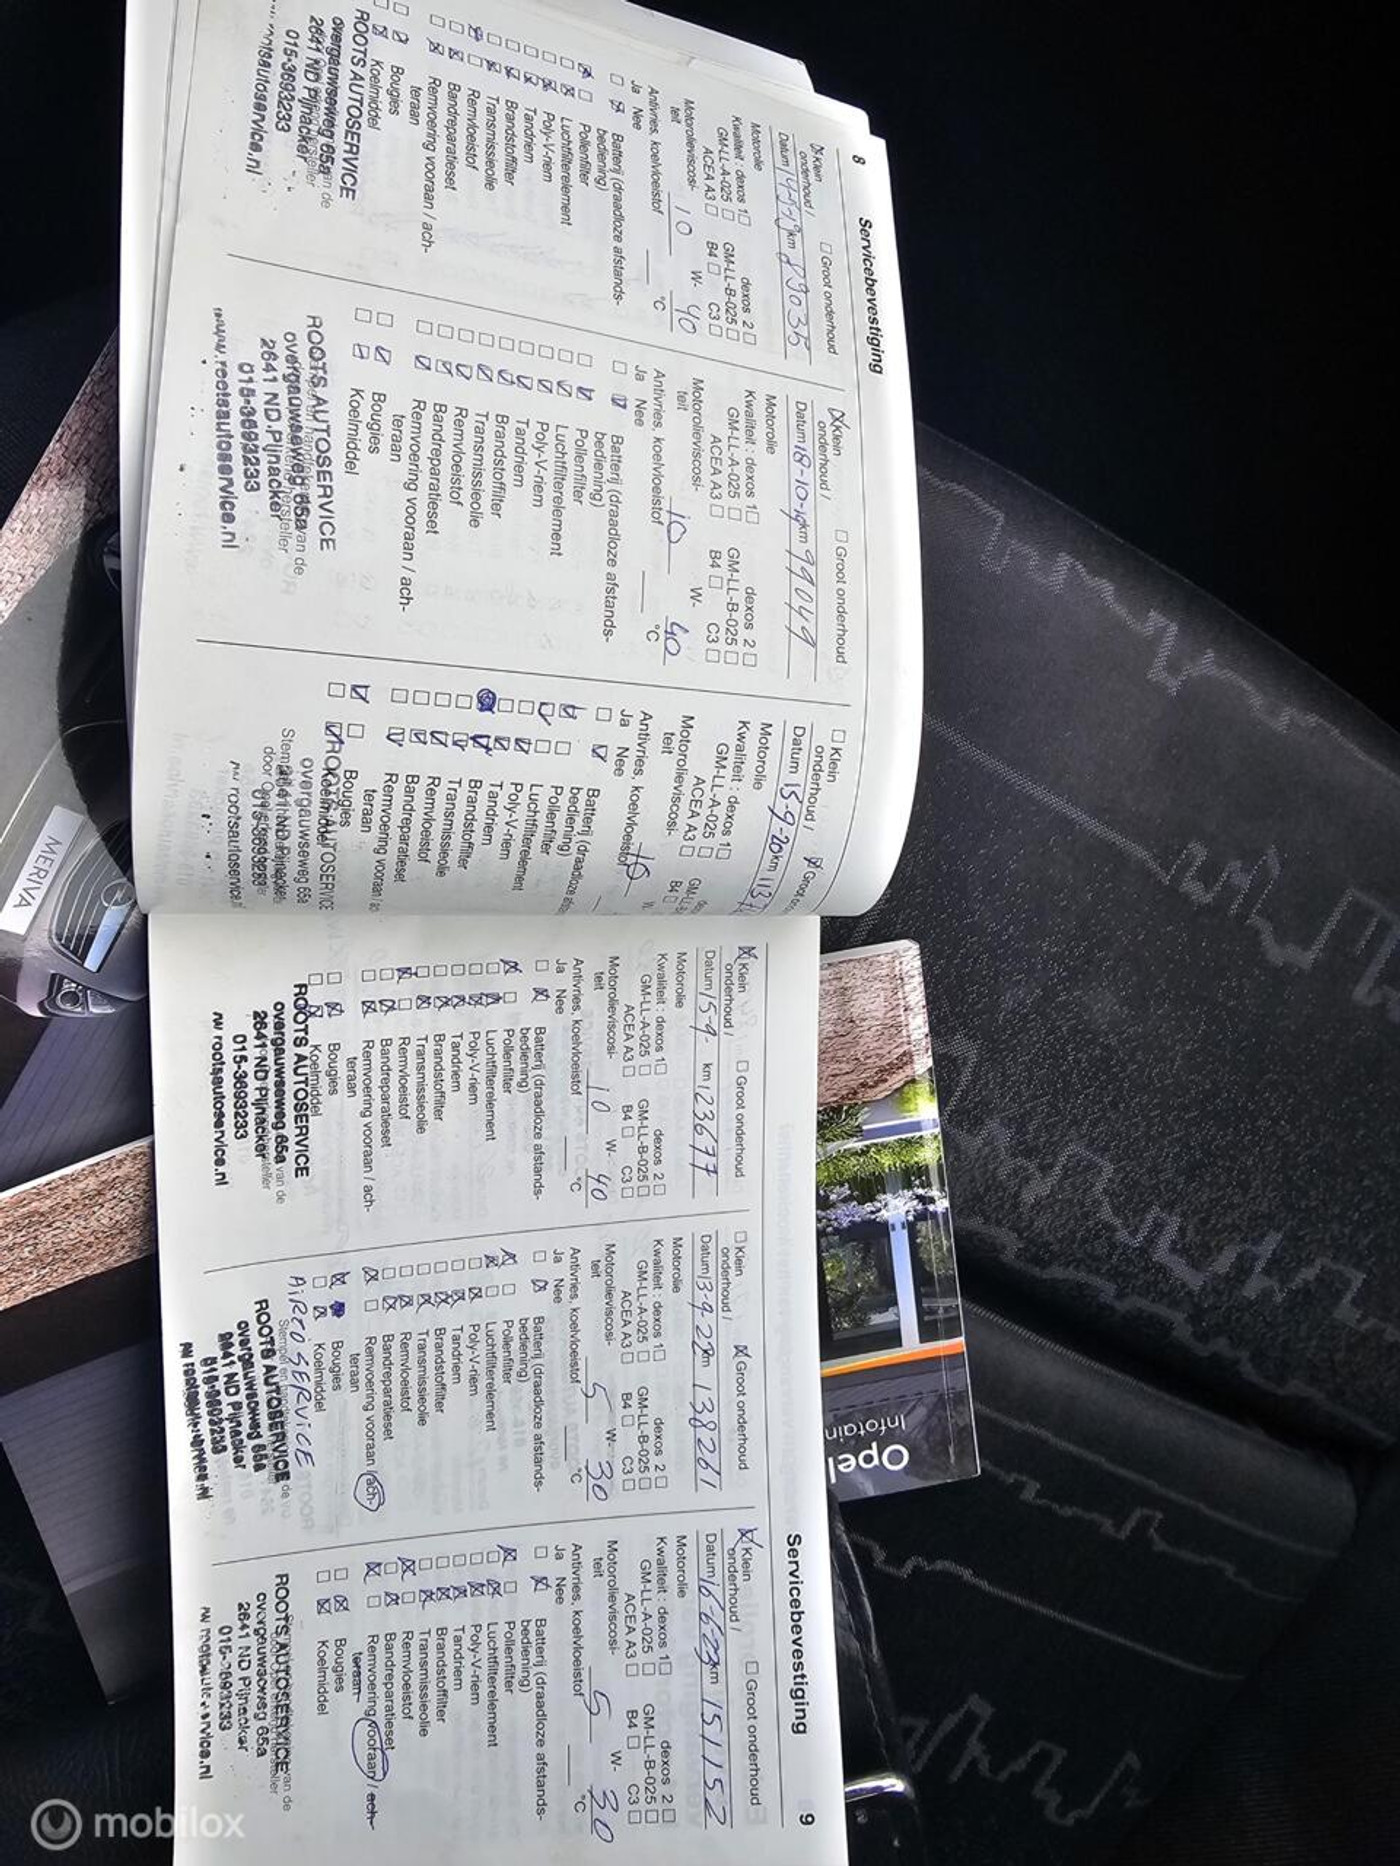 8 Servicebevestiging
☒ Klein onderhoud / ☐ Groot onderhoud
Datum 14-9-19 km 89035
Motorolie
Kwaliteit : dexos 1 ☐ dexos 2 ☐
GM-LL-A-025 ☐ GM-LL-B-025 ☐
ACEA A3 ☐ B4 ☐ C3 ☐
Motorolieviscosi-
teit 10 W- 40
Antivries, koelvloeistof °C
Ja Nee
Batterij (draadloze afstands-
bediening)
Pollenfilter
Luchtfilterelement
Poly-V-riem
Tandriem
Brandstoffilter
Transmissieolie
Remvloeistof
Bandreparatieset
Remvoering vooraan / ach-
teraan
Bougies
Koelmiddel
ROOTS AUTOSERVICE
overgauwseweg 65a
2641 ND Pijnacker
015-3693233
☒ Klein onderhoud / ☐ Groot onderhoud
Datum 18-10-19 km 99049
Motorolie
Kwaliteit : dexos 1 ☐ dexos 2 ☐
GM-LL-A-025 ☐ GM-LL-B-025 ☐
ACEA A3 ☐ B4 ☐ C3 ☐
Motorolieviscosi-
teit 10 W- 40
Antivries, koelvloeistof °C
Ja Nee
Batterij (draadloze afstands-
bediening)
Pollenfilter
Luchtfilterelement
Poly-V-riem
Tandriem
Brandstoffilter
Transmissieolie
Remvloeistof
Bandreparatieset
Remvoering vooraan / ach-
teraan
Bougies
Koelmiddel
ROOTS AUTOSERVICE
overgauwseweg 65a
2641 ND Pijnacker
015-3693233
www.rootsautoservice.nl
☐ Klein onderhoud / ☒ Groot
Datum 15-9-20 km 113
Motorolie
Kwaliteit : dexos 1 ☐
GM-LL-A-025 ☐
ACEA A3 ☐ B4 ☐
Motorolieviscosi-
teit 10
Antivries, koelvloeistof
Ja Nee
Batterij (draadloze
bediening)
Pollenfilter
Luchtfilterelement
Poly-V-riem
Tandriem
Brandstoffilter
Transmissieolie
Remvloeistof
Bandreparatieset
Remvoering vooraan /
teraan
Bougies
Koelmiddel
ROOTS AUTOSERVICE
overgauwseweg 65a
2641 ND Pijnacker
015-3693233
rootsautoservice.
Servicebevestiging 9
☒ Klein onderhoud / ☐ Groot onderhoud
Datum 15-9- km 123677
Motorolie
Kwaliteit : dexos 1 ☐ dexos 2 ☐
GM-LL-A-025 ☐ GM-LL-B-025 ☐
ACEA A3 ☐ B4 ☐ C3 ☐
Motorolieviscosi-
teit 10 W- 40
Antivries, koelvloeistof °C
Ja Nee
Batterij (draadloze afstands-
bediening)
Pollenfilter
Luchtfilterelement
Poly-V-riem
Tandriem
Brandstoffilter
Transmissieolie
Remvloeistof
Bandreparatieset
Remvoering vooraan / ach-
teraan
Bougies
Koelmiddel
ROOTS AUTOSERVICE
overgauwseweg 65a
2641 ND Pijnacker
015-3693233
rootsautoservice.nl
☐ Klein onderhoud / ☒ Groot onderhoud
Datum 13-9-22 km 138261
Motorolie
Kwaliteit : dexos 1 ☐ dexos 2 ☐
GM-LL-A-025 ☐ GM-LL-B-025 ☐
ACEA A3 ☐ B4 ☐ C3 ☐
Motorolieviscosi-
teit 5 W- 30
Antivries, koelvloeistof °C
Ja Nee
Batterij (draadloze afstands-
bediening)
Pollenfilter
Luchtfilterelement
Poly-V-riem
Tandriem
Brandstoffilter
Transmissieolie
Remvloeistof
Bandreparatieset
Remvoering vooraan / ach-
teraan
Bougies
Koelmiddel
AIRCO SERVICE
ROOTS AUTOSERVICE
overgauwseweg 65a
2641 ND Pijnacker
015-3693233
☒ Klein onderhoud / ☐ Groot onderhoud
Datum 16-6-23 km 151152
Motorolie
Kwaliteit : dexos 1 ☐ dexos 2 ☐
GM-LL-A-025 ☐ GM-LL-B-025 ☐
ACEA A3 ☐ B4 ☐ C3 ☐
Motorolieviscosi-
teit 5 W- 30
Antivries, koelvloeistof °C
Ja Nee
Batterij (draadloze afstands-
bediening)
Pollenfilter
Luchtfilterelement
Poly-V-riem
Tandriem
Brandstoffilter
Transmissieolie
Remvloeistof
Bandreparatieset
Remvoering vooraan / ach-
teraan
Bougies
Koelmiddel
ROOTS AUTOSERVICE
overgauwseweg 65a
2641 ND Pijnacker
015-3693233
MERIVA
Opel
Infotain
mobilox